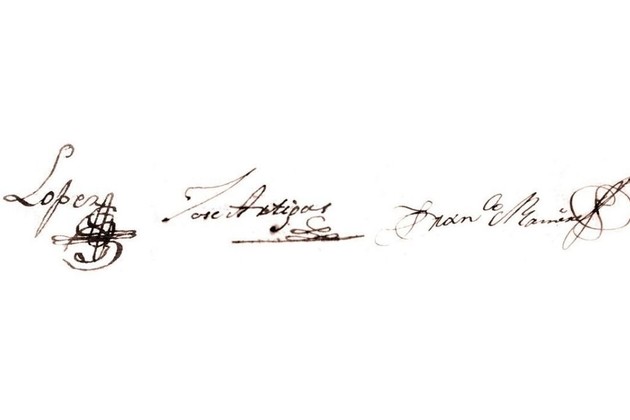 Lopez
Jose Artigas
Fran.co Ramirez